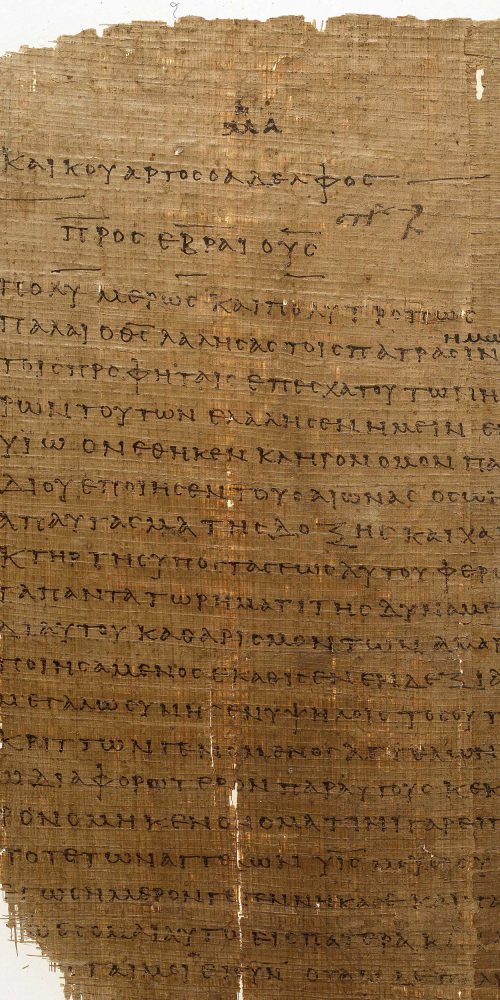 ΜΑ
ΚΑΙ ΚΟΥΑΡΤΟC Ο ΑΔΕΛΦΟC
ΠΡΟC ΕΒΡΑΙΟΥC
ΠΟΛΥΜΕΡΩC ΚΑΙ ΠΟΛΥΤΡΟΠΩC
ΠΑΛΑΙ Ο ΘC ΛΑΛΗCΑC ΤΟΙC ΠΑΤΡΑCΙΝ ΗΜΩ
ΤΟΙC ΠΡΟΦΗΤΑΙC ΕΠ ΕCΧΑΤΟΥ ΤΩΝ ΗΜ
ΡΩΝ ΤΟΥΤΩΝ ΕΛΑΛΗCΕΝ ΗΜΕΙΝ Ε
ΥΙΩ ΟΝ ΕΘΗΚΕΝ ΚΛΗΡΟΝΟΜΟΝ ΠΑ
ΔΙ ΟΥ ΕΠΟΙΗCΕΝ ΤΟΥC ΑΙΩΝΑC ΟC ΩΝ
ΑΠΑΥΓΑCΜΑ ΤΗC ΔΟΞΗC ΚΑΙ ΧΑ
ΚΤΗΡ ΤΗC ΥΠΟCΤΑCΕΩC ΑΥΤΟΥ ΦΕΡΩ
ΤΑ ΠΑΝΤΑ ΤΩ ΡΗΜΑΤΙ ΤΗC ΔΥΝΑΜΕ
ΔΙ ΑΥΤΟΥ ΚΑΘΑΡΙCΜΟΝ ΤΩΝ ΑΜΑΡ
ΠΟΙΗCΑΜΕΝΟC ΕΚΑΘΙCΕΝ ΕΝ ΔΕΞΙΑ
ΜΕΓΑΛΩCΥΝΗC ΕΝ ΥΨΗΛΟΙC ΤΟCΟΥΤ
ΚΡΙΤΤΩΝ ΓΕΝΟΜΕΝΟC ΑΓΓΕΛΩΝ
Ω ΔΙΑΦΟΡΩΤΕΡΟΝ ΠΑΡ ΑΥΤΟΥC ΚΕΚ
ΡΟΝΟΜΗΚΕΝ ΟΝΟΜΑ ΤΙΝΙ ΓΑΡ ΕΙΠ
ΠΟΤΕ ΤΩΝ ΑΓΓΕΛΩΝ ΥΙC ΜΟΥ ΕΙ CΥ
ΓΩ CΗΜΕΡΟΝ ΓΕΓΕΝΝΗΚΑ CΕ ΚΑΙ ΠΑ
ΕCΟΜΑΙ ΑΥΤΩ ΕΙC ΠΑΤΕΡΑ Κ